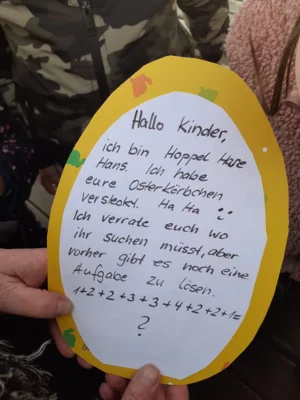 Hallo Kinder,
ich bin Hoppel Hase
Hans. Ich habe
eure Osterkörbchen
versteckt. Ha Ha
Ich verrate euch wo
ihr suchen müsst, aber
vorher gibt es noch eine
Aufgabe zu lösen.
1+2+2+3+3+4+2+2+1=
?